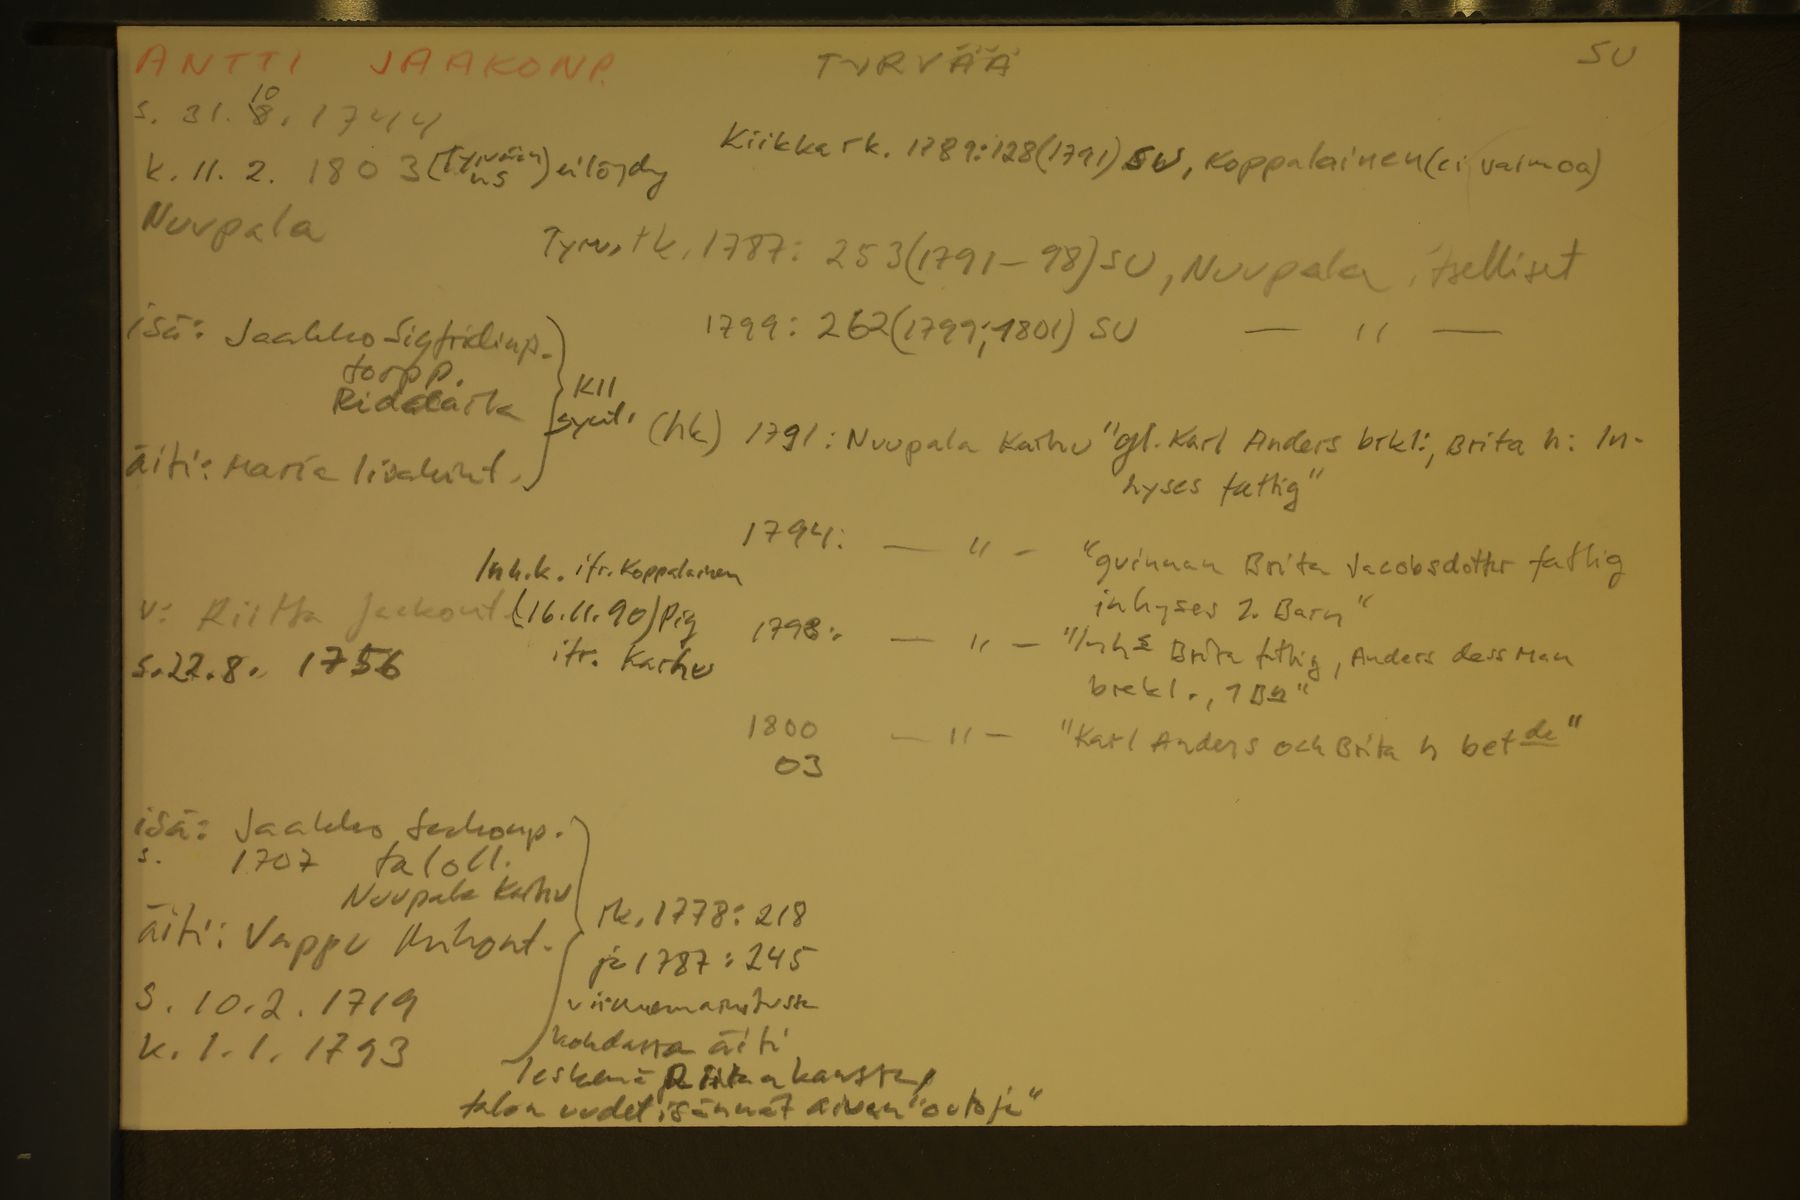 ANTTI JAAKONP. TYRVÄÄ SU
s. 31. 10 8. 1744
k. 11. 2. 1803 (Tyrvään us) ei löydy
Kiikka rk. 1789:128(1791) SU, Koppalainen (ei vaimoa)
Nuupala
Tyrv. rk. 1787: 253(1791-98) SU, Nuupala, itselliset
1799: 262(1799;1801) SU — " —
isä: Jaakko Sigfridinp.
torpp.
äiti: Maria Iisakint.
KII
synt.
(hk) 1791: Nuupala Karhu "gl. Karl Anders brkl:, Brita h: In-
hyses fattig"
1794: — " — "qvinnan Brita Jacobsdotter fattig
inhyses 2. Barn"
Inh.k. ifr. Koppalainen
v: Riitta Jaakont. (16.11.90) Pig
ifr. Karhu
s. 22.8. 1756
1798: — " — "Inhs Brita fttig, Anders dess Man
brekl., 1 Bn"
1800 — " — "Karl Anders och Brita h bet de"
03
isä: Jaakko Jaakonp.
s. 1707 taloll.
Nuupala Karhu
äiti: Vappu
s. 10.2. 1719
k. 1.1. 1793
rk. 1778: 218
ja 1787: 245
viimemainitussa
kohdassa äiti
leskenä Riitan kanssa,
talon uudet isännät aivan "outoja"